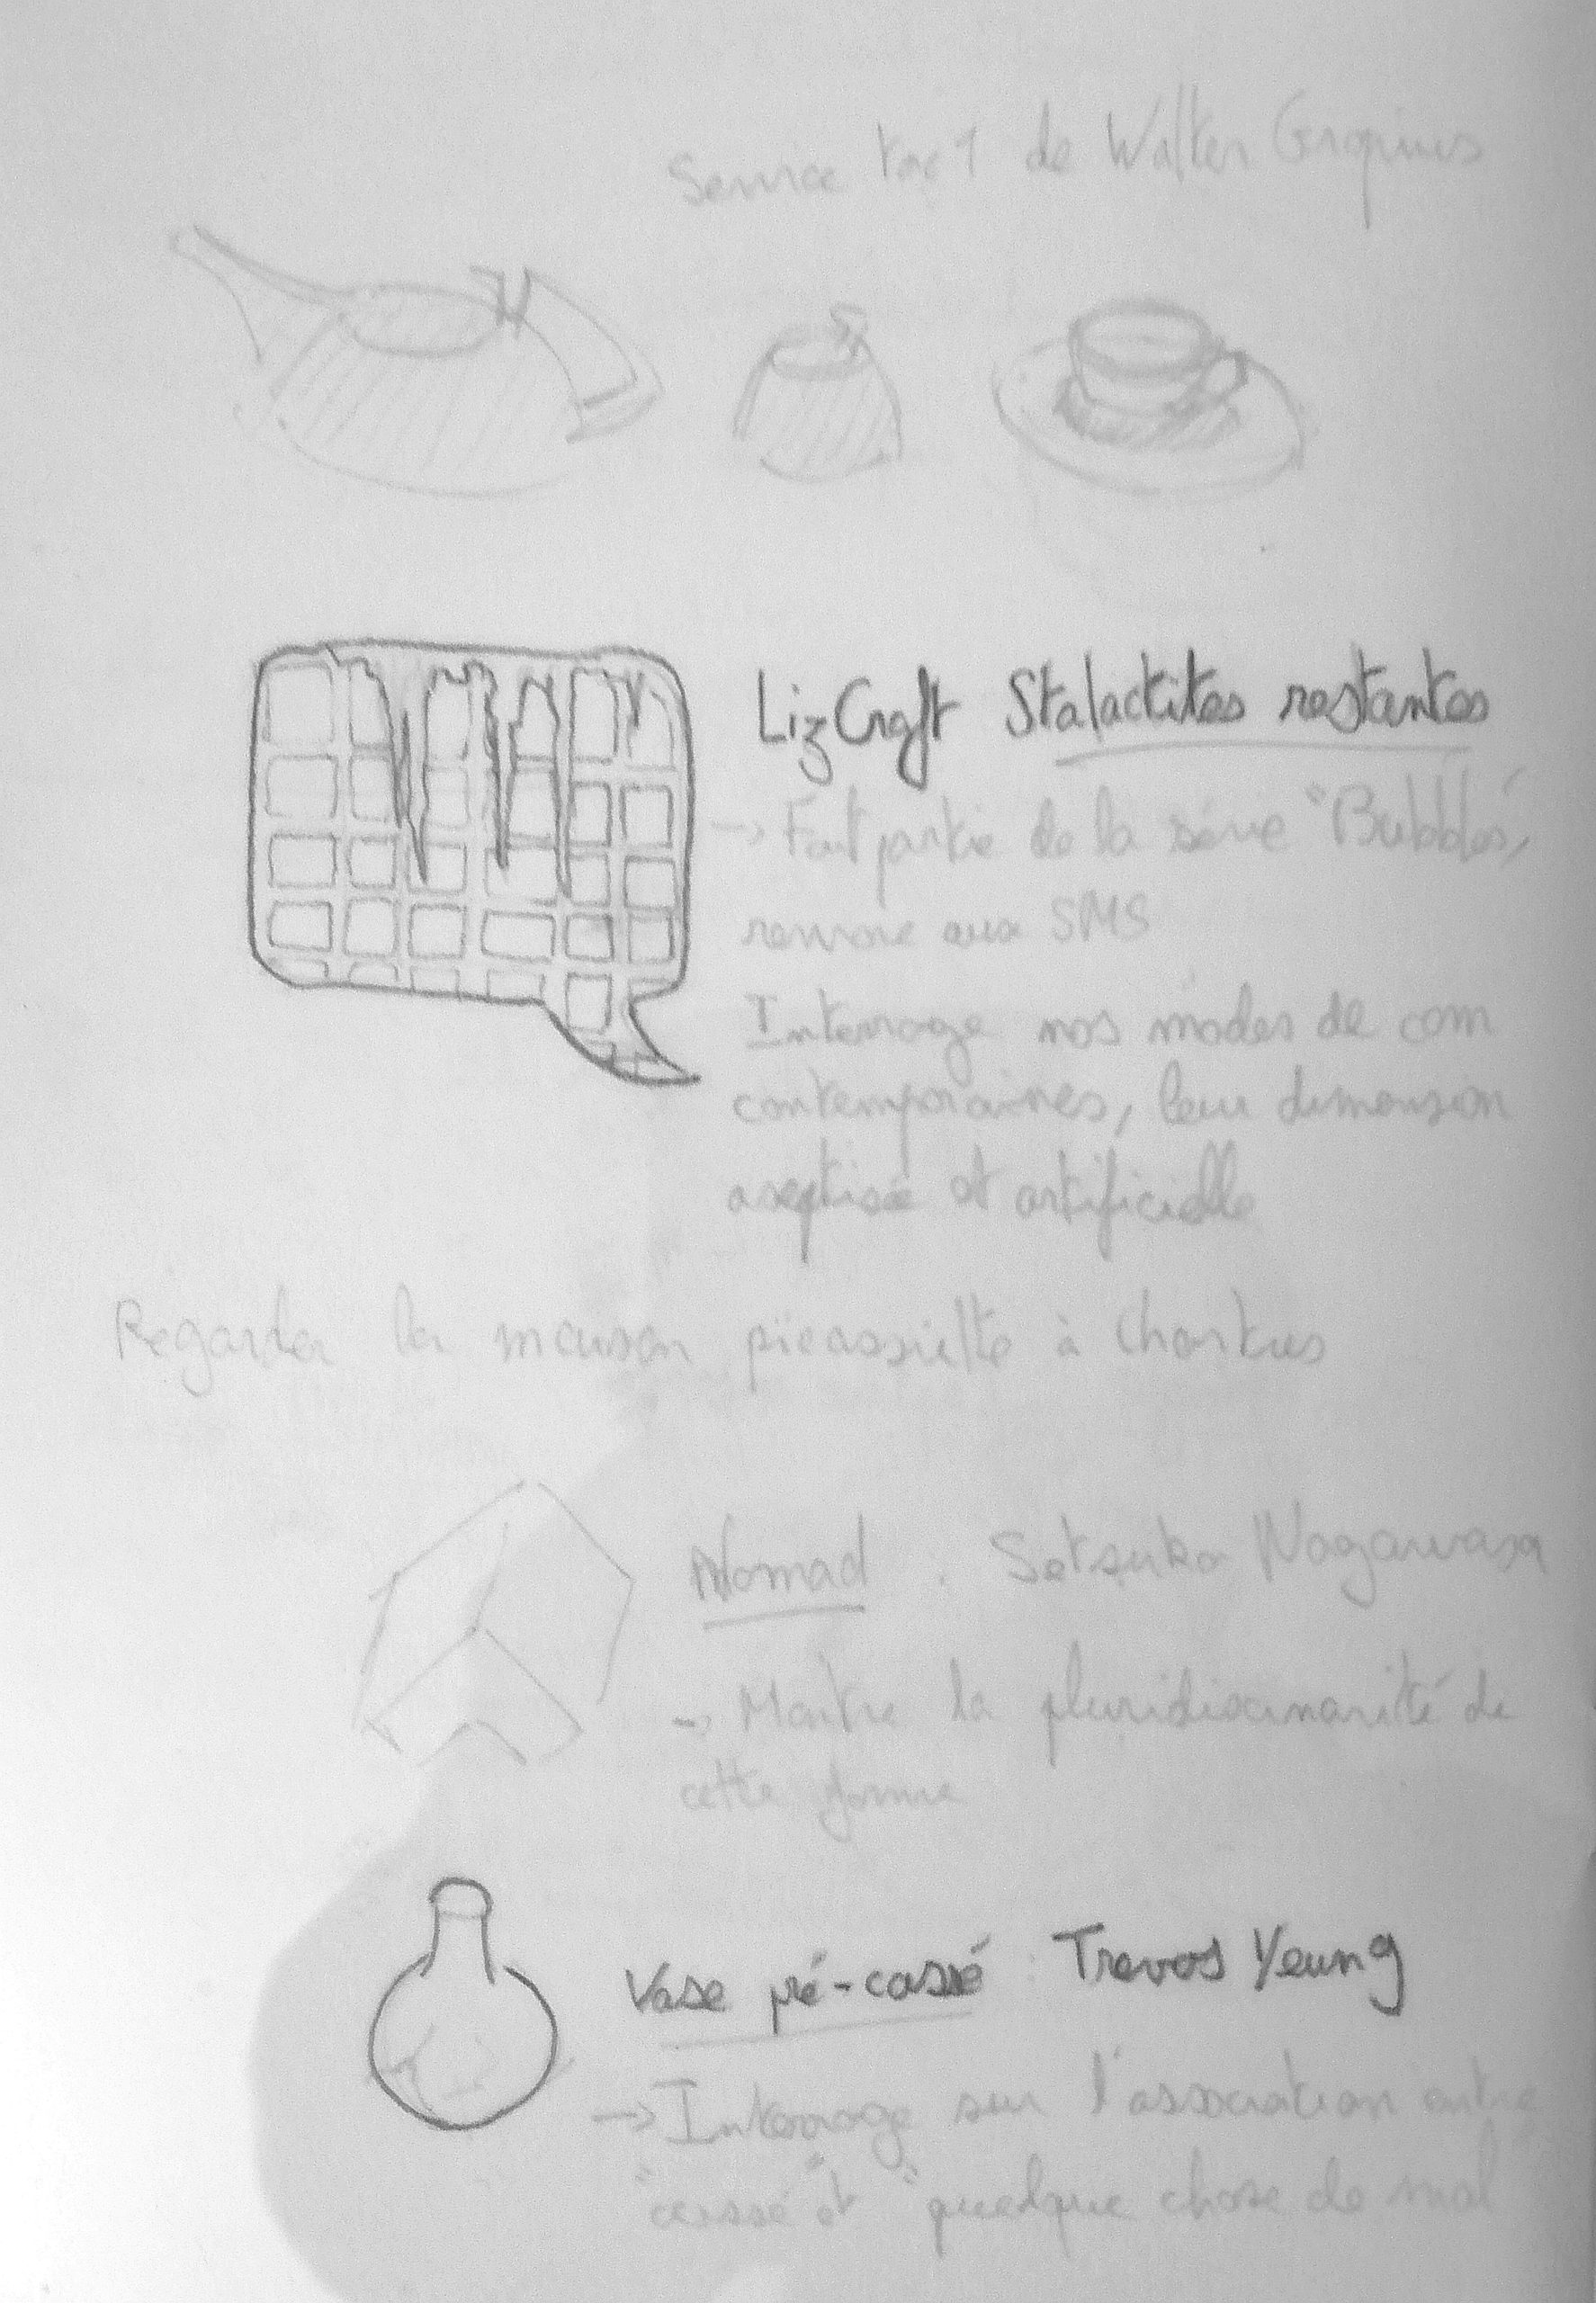 Service tac 1 de Walter Gropius
Liz Craft Stalactites restantes
→ Fait partie de la série "Bubbles",
renvoie aux SMS
Interroge nos modes de com
contemporaines, leur dimension
aseptisée et artificielle
Regarder la maison picassiette à Chartres
Nomad : Setsuko Nagawasa
→ Montre la pluridiscinarité de
cette forme
Vase pré-cassé : Trevos Yeung
→ Interroge sur l'association entre
"cassé" et "quelque chose de mal